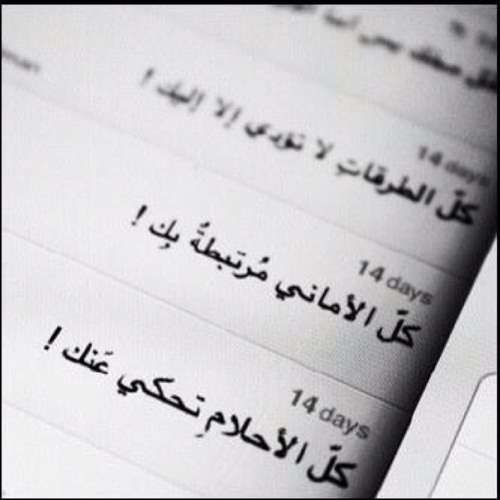 14 days
كلّ الطرقاتِ لا تؤدي إلا إليك !
14 days
كلّ الأماني مُرتبطةٌ بِك !
14 days
كلّ الأحلامِ تحكي عَنك !